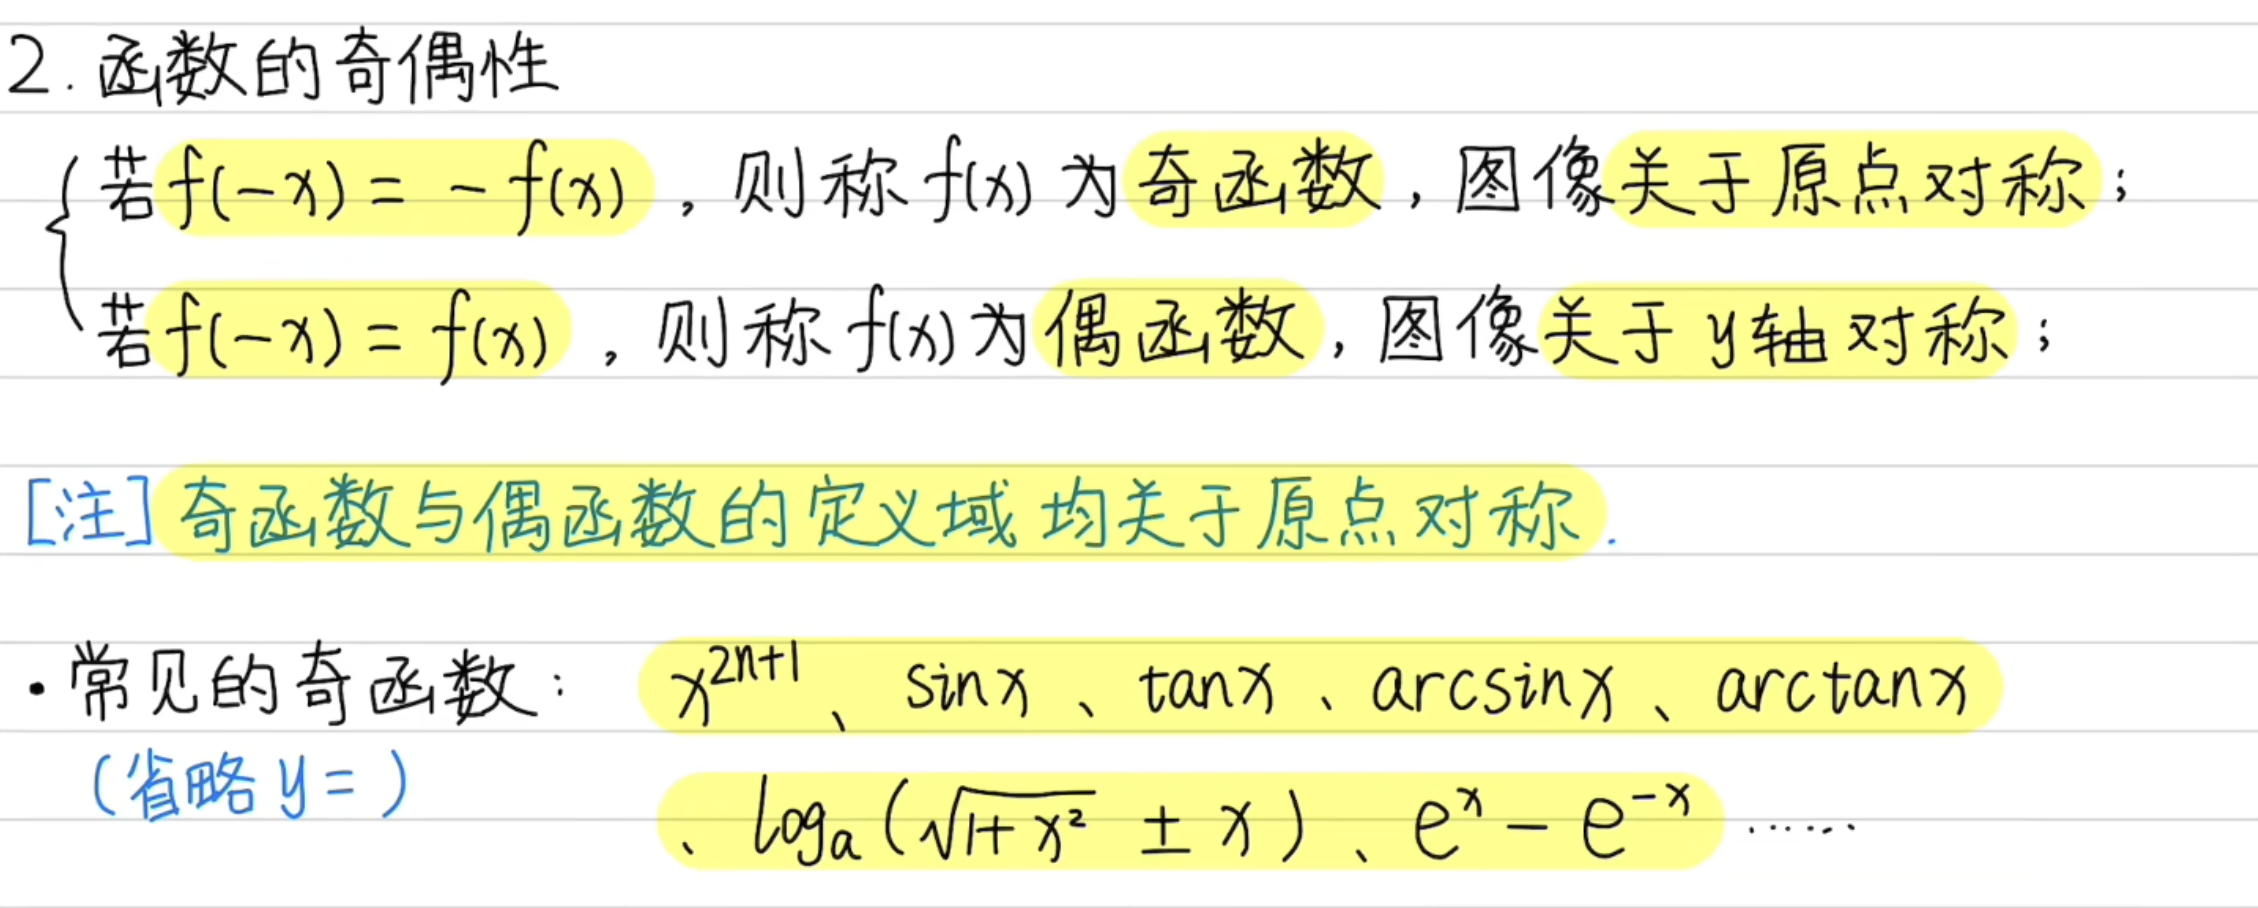 2. 函数的奇偶性
若f(-x) = - f(x) , 则称 f(x) 为奇函数, 图像关于原点对称;
若f(-x) = f(x) , 则称 f(x) 为偶函数, 图像关于 y轴对称;
[注] 奇函数与偶函数的定义域 均关于原点对称.
· 常见的奇函数: x²ⁿ⁺¹、sinx、tanx、arcsinx、arctanx
(省略 y= ) 、logₐ(√(1+x²) ± x)、eˣ - e⁻ˣ ……